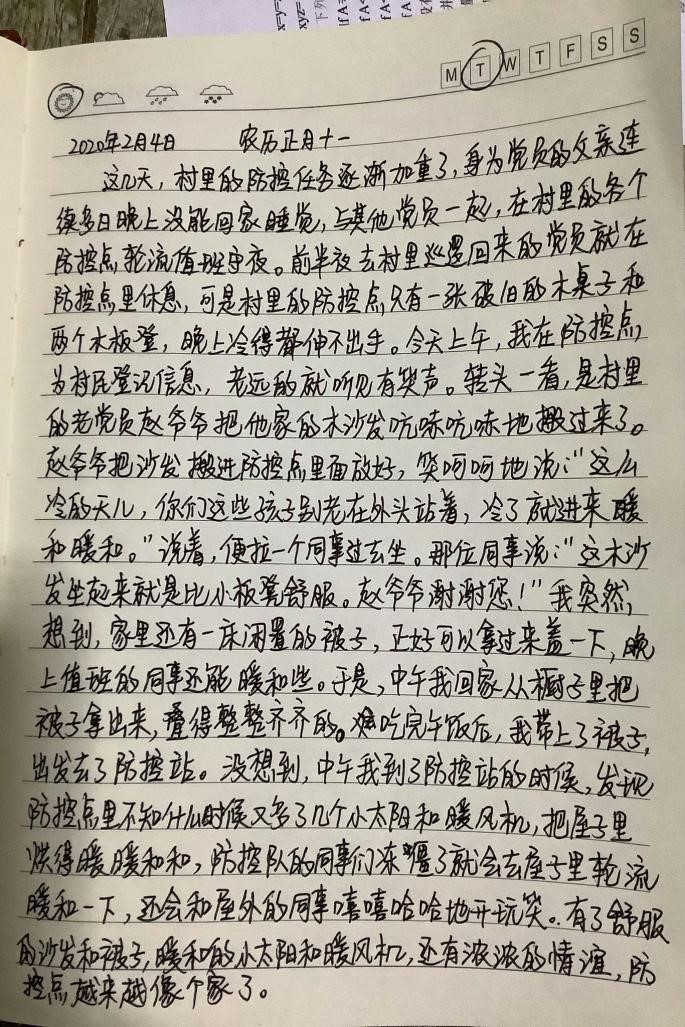 M T W T F S S
2020年2月4日 农历正月十一
这几天，村里的防控任务逐渐加重了，身为党员的父亲连
续多日晚上没能回家睡觉，与其他党员一起，在村里的各个
防控点轮流值班守夜。前半夜去村里巡逻回来的党员就在
防控点里休息，可是村里的防控点只有一张破旧的木桌子和
两个木板登，晚上冷得都伸不出手。今天上午，我在防控点
为村民登记信息，老远的就听见有笑声。转头一看，是村里
的老党员赵爷爷把他家的木沙发吭哧吭哧地搬过来了。
赵爷爷把沙发搬进防控点里面放好，笑呵呵地说：“这么
冷的天儿，你们这些孩子别老在外头站着，冷了就进来暖
和暖和。”说着，便拉一个同事过去坐。那位同事说：“这木沙
发坐起来就是比小板凳舒服。赵爷爷谢谢您！”我突然
想到，家里还有一床闲置的被子，正好可以拿过来盖一下，晚
上值班的同事还能暖和些。于是，中午我回家从橱子里把
被子拿出来，叠得整整齐齐的。吃完午饭后，我带上了被子，
出发去了防控站。没想到，中午我到了防控站的时候，发现
防控点里不知什么时候又多了几个小太阳和暖风机，把屋子里
烘得暖暖和和，防控队的同事们冻僵了就会去屋子里轮流
暖和一下，还会和屋外的同事嘻嘻哈哈地开玩笑。有了舒服
的沙发和被子，暖和的小太阳和暖风机，还有浓浓的情谊，防
控点越来越像个家了。